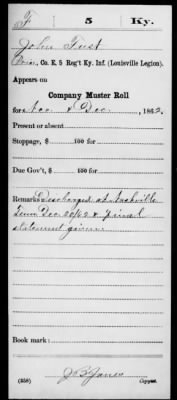 F 5 Ky.
John Fust
Co. E, 5 Reg't Ky. Inf. (Louisville Legion).
Appears on
Company Muster Roll
for Nov & Dec, 1862.
Present or absent
Stoppage, $ 100 for
Due Gov't, $ 100 for
Remarks Discharged at Nashville
Tenn Dec 20/62 & final
statement given
Book mark:
J B Jones
(358) Copyist.